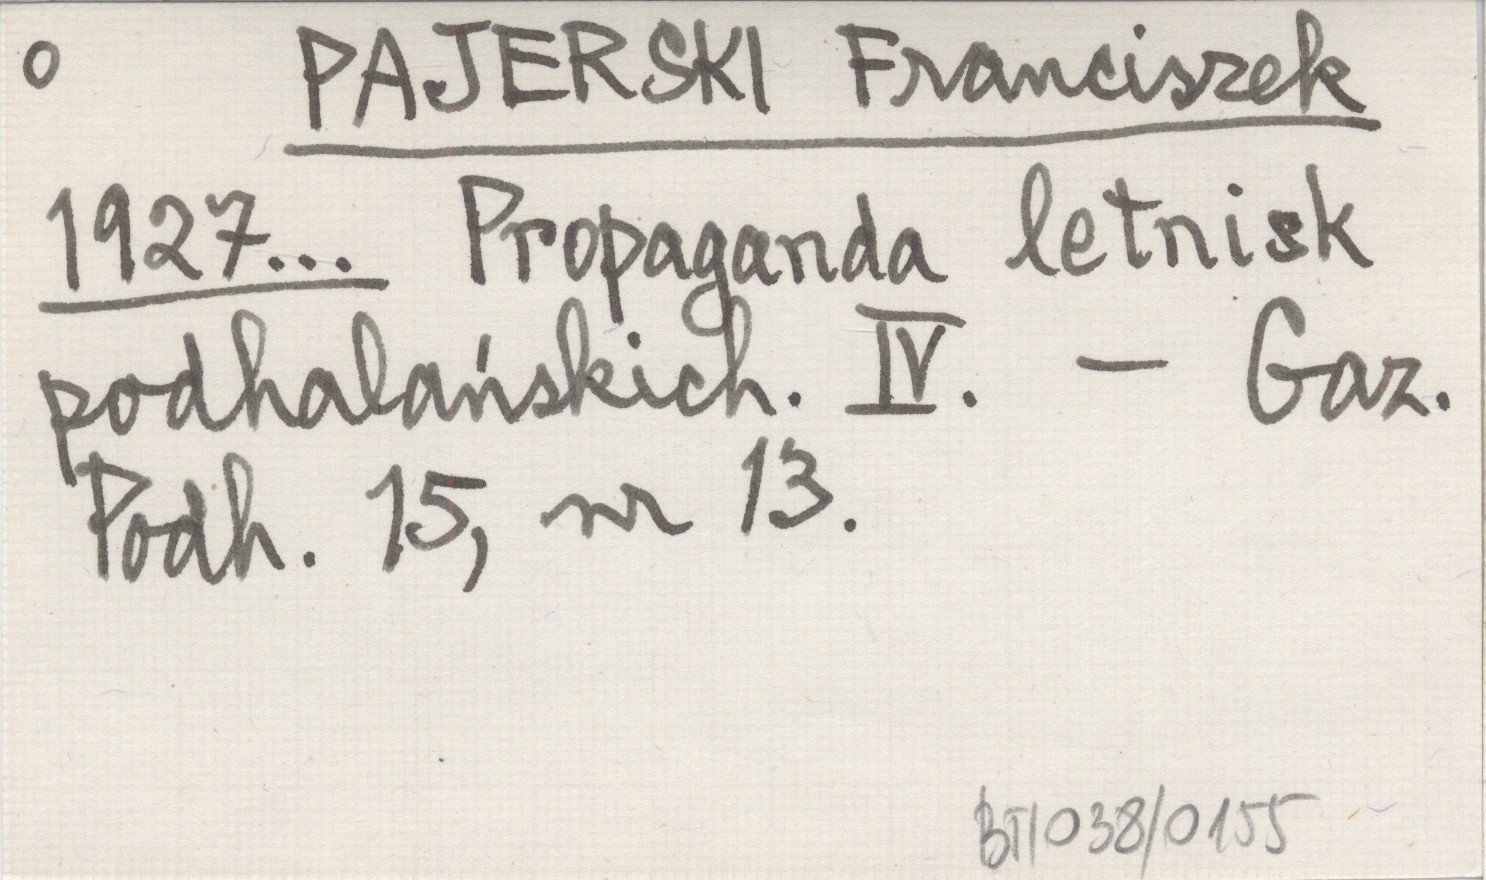 o PAJERSKI Franciszek
1927... Propaganda letnisk
podhalańskich. IV. — Gaz.
Podh. 15, nr 13.
BT/038/0155